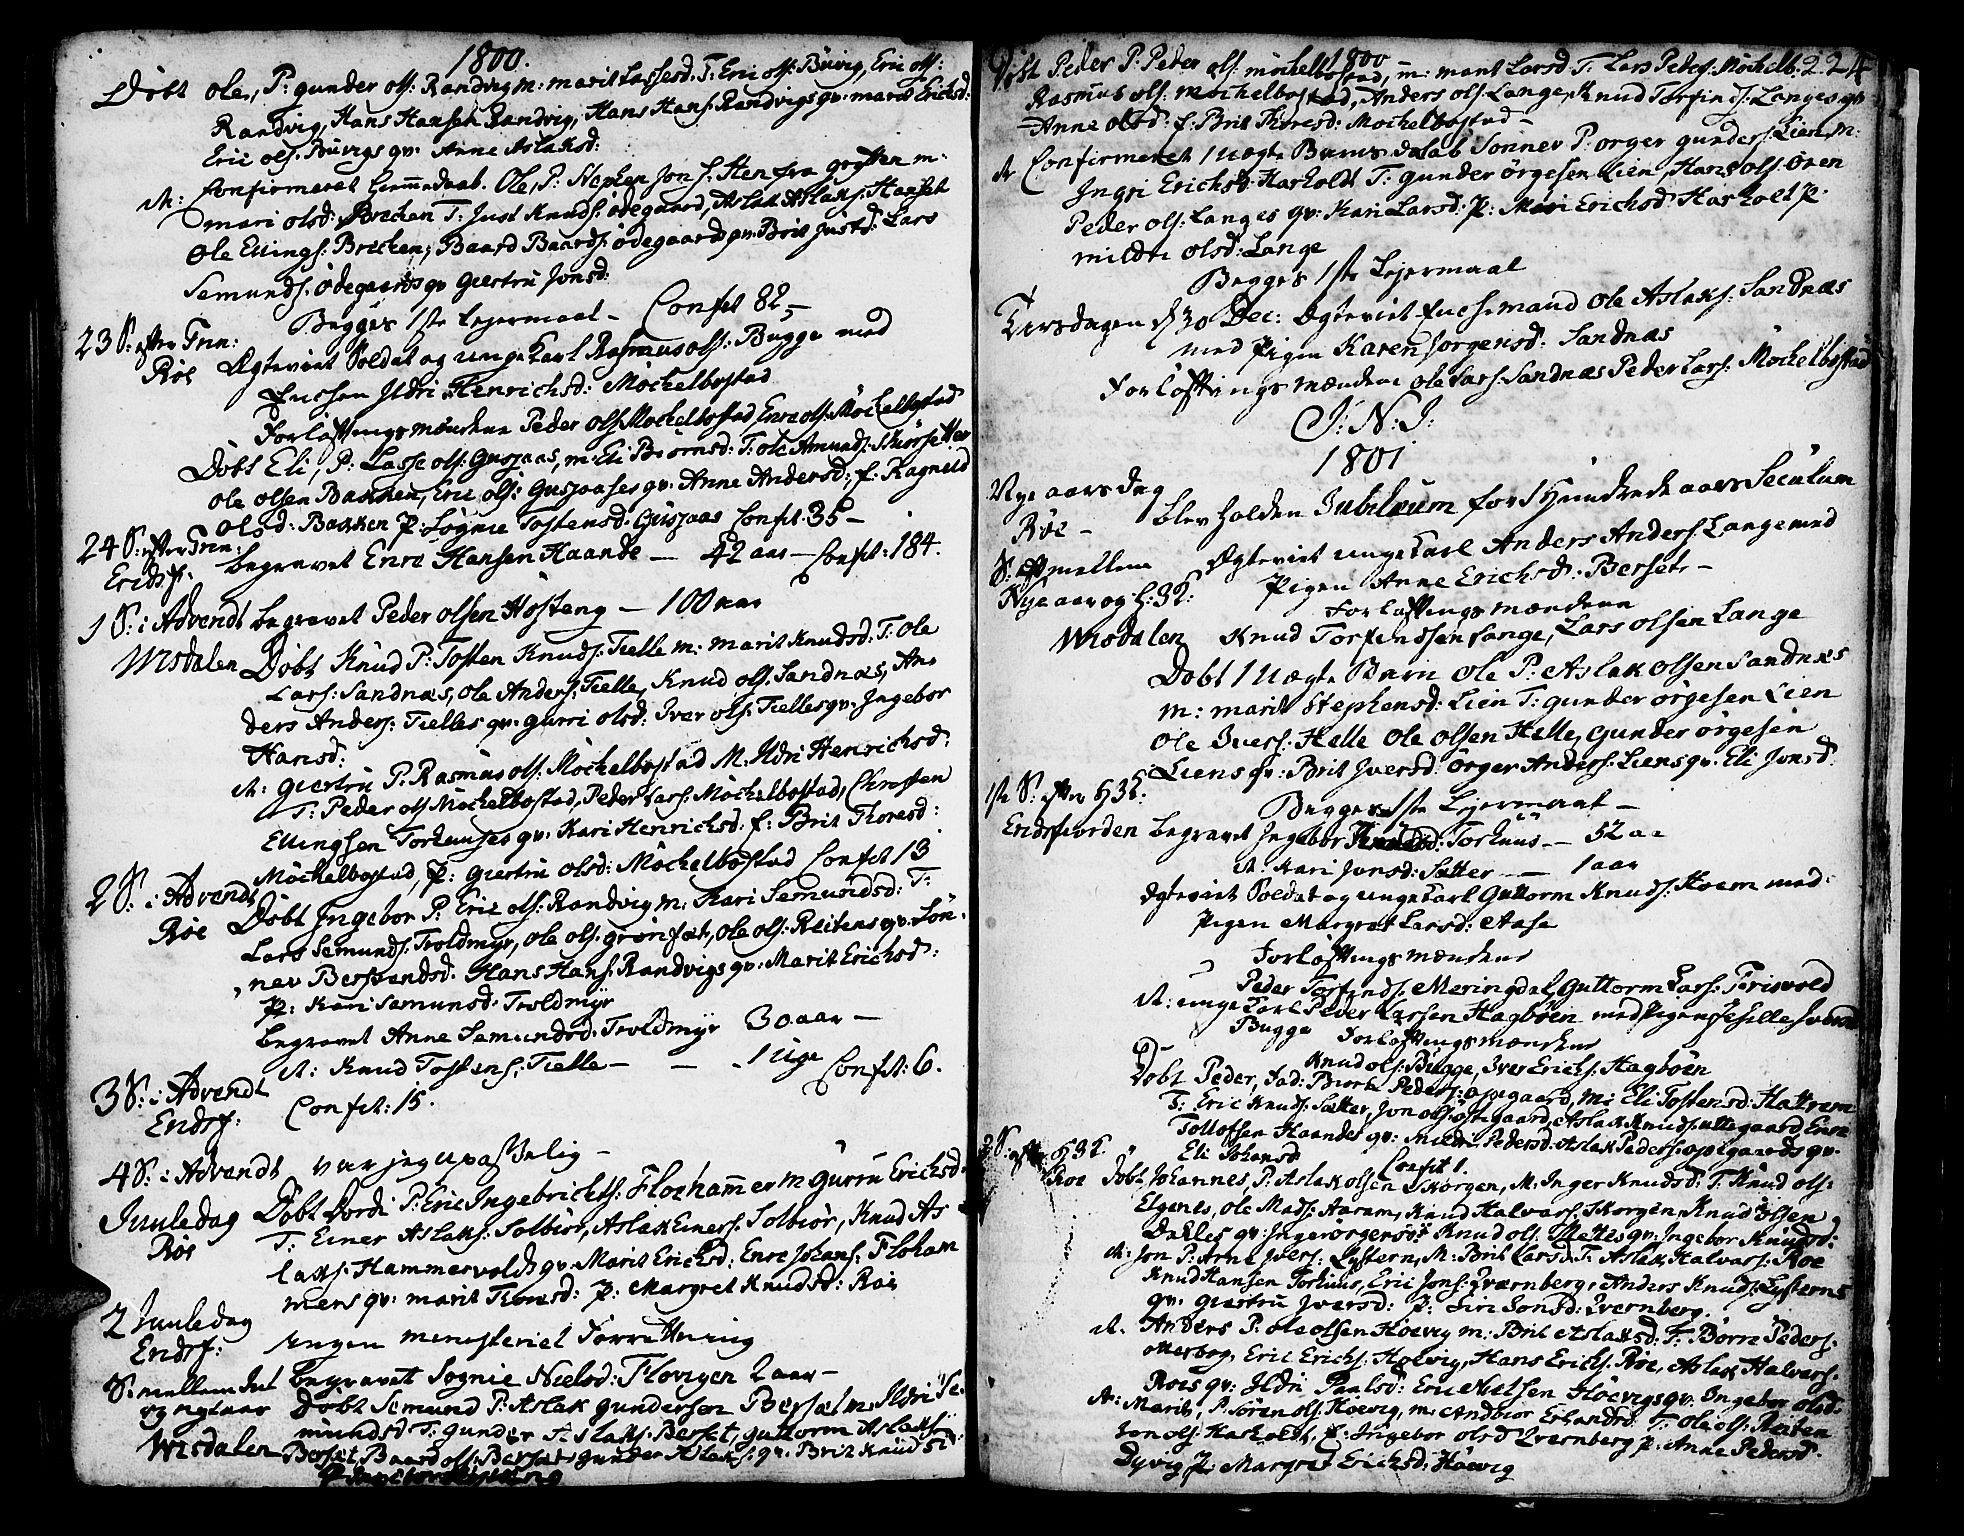 1800.
Döbt Ole, P: gunder ols: Randvig m: marit Lassesd: T: Eric ols: Büvig, Eric ols:
Randvig, Hans Hansen Randvig, Hans Hans: Randvigs qv: marit Erichsd:
Eric ols: Büvigs qv: Anne Aslaksd:
it: Confirmeret hiemedaab. Ole, P: Stephen Jons: Sten fra grÿtten m:
mari olsd: Brechen T: Just Knuds: ödegaard, Aslak Aslaks: Hanset
Ole Ellings: Brechen, Baard Baards: ödegaards qv: Brit Justd: Lars
Semunds: ödegaards qv giertru Jonsd:
Begges 1ste Lejermaal – Confit 82 –
23 S: efter Trin: Ægteviet Soldat og unge Karl Rasmus ols: Bugge med
Röe Enchen Ildri Henrichsd: Möchelbostad
Forlöftningsmændene Peder ols Möchelbostad, Enre ols: Möchelbostad
Döbt Eli, P: Lasse ols: Gusjaas, m: Eli Biörnsd: T: ole Amunds: Skiorsetter
ole olsen Bakken, Eric ols: Gusjaases qv: Anne Andersd: f: Ragnild
olsd: Bakken p: Lognie Tostensd: Gusjaas Confit: 35 –
24 S: efter Trin: begravet Enre Hansen Haande – 42 aar – Confit: 184.
Eridsf:
1 S: i Advendt begravet Peder olsen Hösteng – 100 aar
Wisdalen Döbt Knud P: Tosten Knuds: Tielle m: marit Knudsd: T: Ole
Lars: Sandnæs, ole Anders: Tielle, Knud ols: Sandnæs, An
ders Anders: Tielles qv: gurri olsd: Iver ols: Tielles qv: Ingebor
Hansd:
it: giertru P: Rasmus ols: Möchelbostad M: Ildri Henrichsd:
T: Peder ols Möchelbostad, Peder Lars: Möchelbostad, Christen
Ellingsen Torhuuses qv: Kari Henrichsd. f: Brit Thoresd:
Möchelbostad, p: giertru olsd: Möchelbostad Confit 13
2 S: i Advendt Döbt Ingebor P: Eric ols: Randvig m: Kari Semundsd: T:
Röe Lars Semunds: Troldmÿr, ole ols: grönset, ole ols: Reitens qv: Sön
nev Berssendsd: Hans Hans: Randvigs qv: Marit Erichsd:
p: Kari Semunsd: Troldmÿr
begravet Anne Semundsd: Troldmÿr 30 aar –
it: Knud Tostens: Tielle – – 1 uge Confit: 6.
3 S: i Advendt
Endsf: Confit: 15.
4 S: i Advendt var jeg upasselig –
Juuledag Döbt Dordi P: Eric Ingebrichts: Flohammer m Gurru Erichsd:
Röe T: Einer Aslaks: Solbiör, Aslak Einers: Solbiör, Knud As
laks: Hammervolds qv: Marit Erichsd: Enre Johans: Floham
mers qv: marit Thoresd: p: Margret Knudsd: Röe
2 Juuledag
Endsf: Ingen menesteriel Forretning
S: mellem Jul begravet Sognie Nielsd: Flovigen 2 aar –
og nytaar Döbt Semund P: Aslak gundersen Berset m: Ildri Se
mundsd T: gunder Aslaks: Berset, guttorm Aslaks:
Wisdalen Berset, Baard ols: Berset, gunder Aslaks: qv: Brit Knudsd:
1800 224
Döbt Peder P: Peder ols: möchelbostad, m: marit Larsd T: Lars Peders: Möchelb:
Rasmus ols: Möchelbostad, Anders ols: Lange, Knud Torfinds: Langes qv
Anne olsd: f: Brit Thoresd: Möchelbostad –
it Confirmeret 1 uægte Barns daab Sönnev P: örger gunders: Lien, m:
Ingri Erichsd: Harholdt T: gunder örgesen Lien, Hans ols: ören
Peder ols: Langes qv: Kari Larsd: p: Mari Erichsd Harholt p:
mildri olsd: Lange
Begges 1ste Lejermaal
Tirsdagen d 30 Dec: Ægteviet Enchemand Ole Aslaks: Sandnæs
med Pigen Karen Jorgensd: Sandnæs
Forlöftningsmændene ole Lars: Sandnæs Peder Lars: Möchelbostad
J: N: J:
1801
Nye aars dag blev holden Jubilæum for 1 Hundrede aars Seculum
Röe –
S: mellem Ægteviet unge Karl Anders Anders: Lange med
Nyeaar og H: 3K: Pigen Anne Erichsd: Berset –
Forlöftningsmændene
Wisdalen Knud Torfenssen Lange, Lars olsen Lange
Döbt 1 Uægte Barn Ole P: Aslak olsen Sandnæs
m: marit Stephensd: Lien T: gunder örgesen Lien
Ole Ivers: Helle Ole olsen Helle, Gunder örgesen
Liens qv: Brit Iversd: örger Anders: Liens qv: Eli Jonsd:
Begges 1ste Lejermaal –
1ste S: efter H3K:
Eridsfiorden begravet Ingebor Knudsd: Torhüüs – 52 aar
it: Kari Jonsd: Sætter – 1 aar
Ægteviet Soldat og unge Karl Guttorm Knuds: Hoem med
Pigen Margret Larsd: Aase
Forlöftningsmændene
Peder Torfinds: Meringdal, Guttorm Lars: Frisvold
it: unge Karl Peder Larsen Hagböen med Pigen Sehille Iversd
Bugge Forlöftningsmændene
Knud ols: Bügge, Iver Erichs: Hagböen
Döbt Peder, Fad: Burte Peders: opegaard, M: Eli Tostensd: Hattrem
T: Eric Knuds: Sætter, Jon ols: östegaard, Aslak Knuds: uttegaard Enre
Tollofsen Haandes qv: mildri Pedersd: Aslak Peders: opegaards qv:
Eli Johansd Confit 1.
2 S: efter H3K:
Röe Döbt Johannes, P: Aslak olsen Skorgen, M: Inger Knudsd: T: Knud ols:
Elgenes, ole Mads: Aaram, Knud Halvors: Skorgen, Knud olsen
Dahles qv: Inger örgensd: Knud ols: Slettes qv: Ingebor Knudsd:
it: Jon P: Arne Ivers: Lÿstern, M: Brit Larsd: T: Aslak Halvars: Röe
Knud Hansen Torhüus, Eric Jons: Qværnberg, Anders Knuds: Lÿsterns
qv: giertru Iversd: p: Siri Jonsd: Qvernberg.
it. Anders P: ole olsen Höevig m: Brit Aslaksd: T: Börre Peders:
otterbog, Eric Erichs: Höevig, Hans Erichs: Röe, Aslak Halvars:
Röes qv: Ildri Paulsd: Eric Nielsen Höevigs qv: Ingebor olsd:
it: Marit, P: Sören ols: Höevig, m: Andbior Erlandsd: T: Ole ols: Reiten
Jon ols: Harholdt, f: Ingebor olsd: Qvernberg p: Anne Pedersd:
Dÿvig p: Margret Erichsd: Höevig